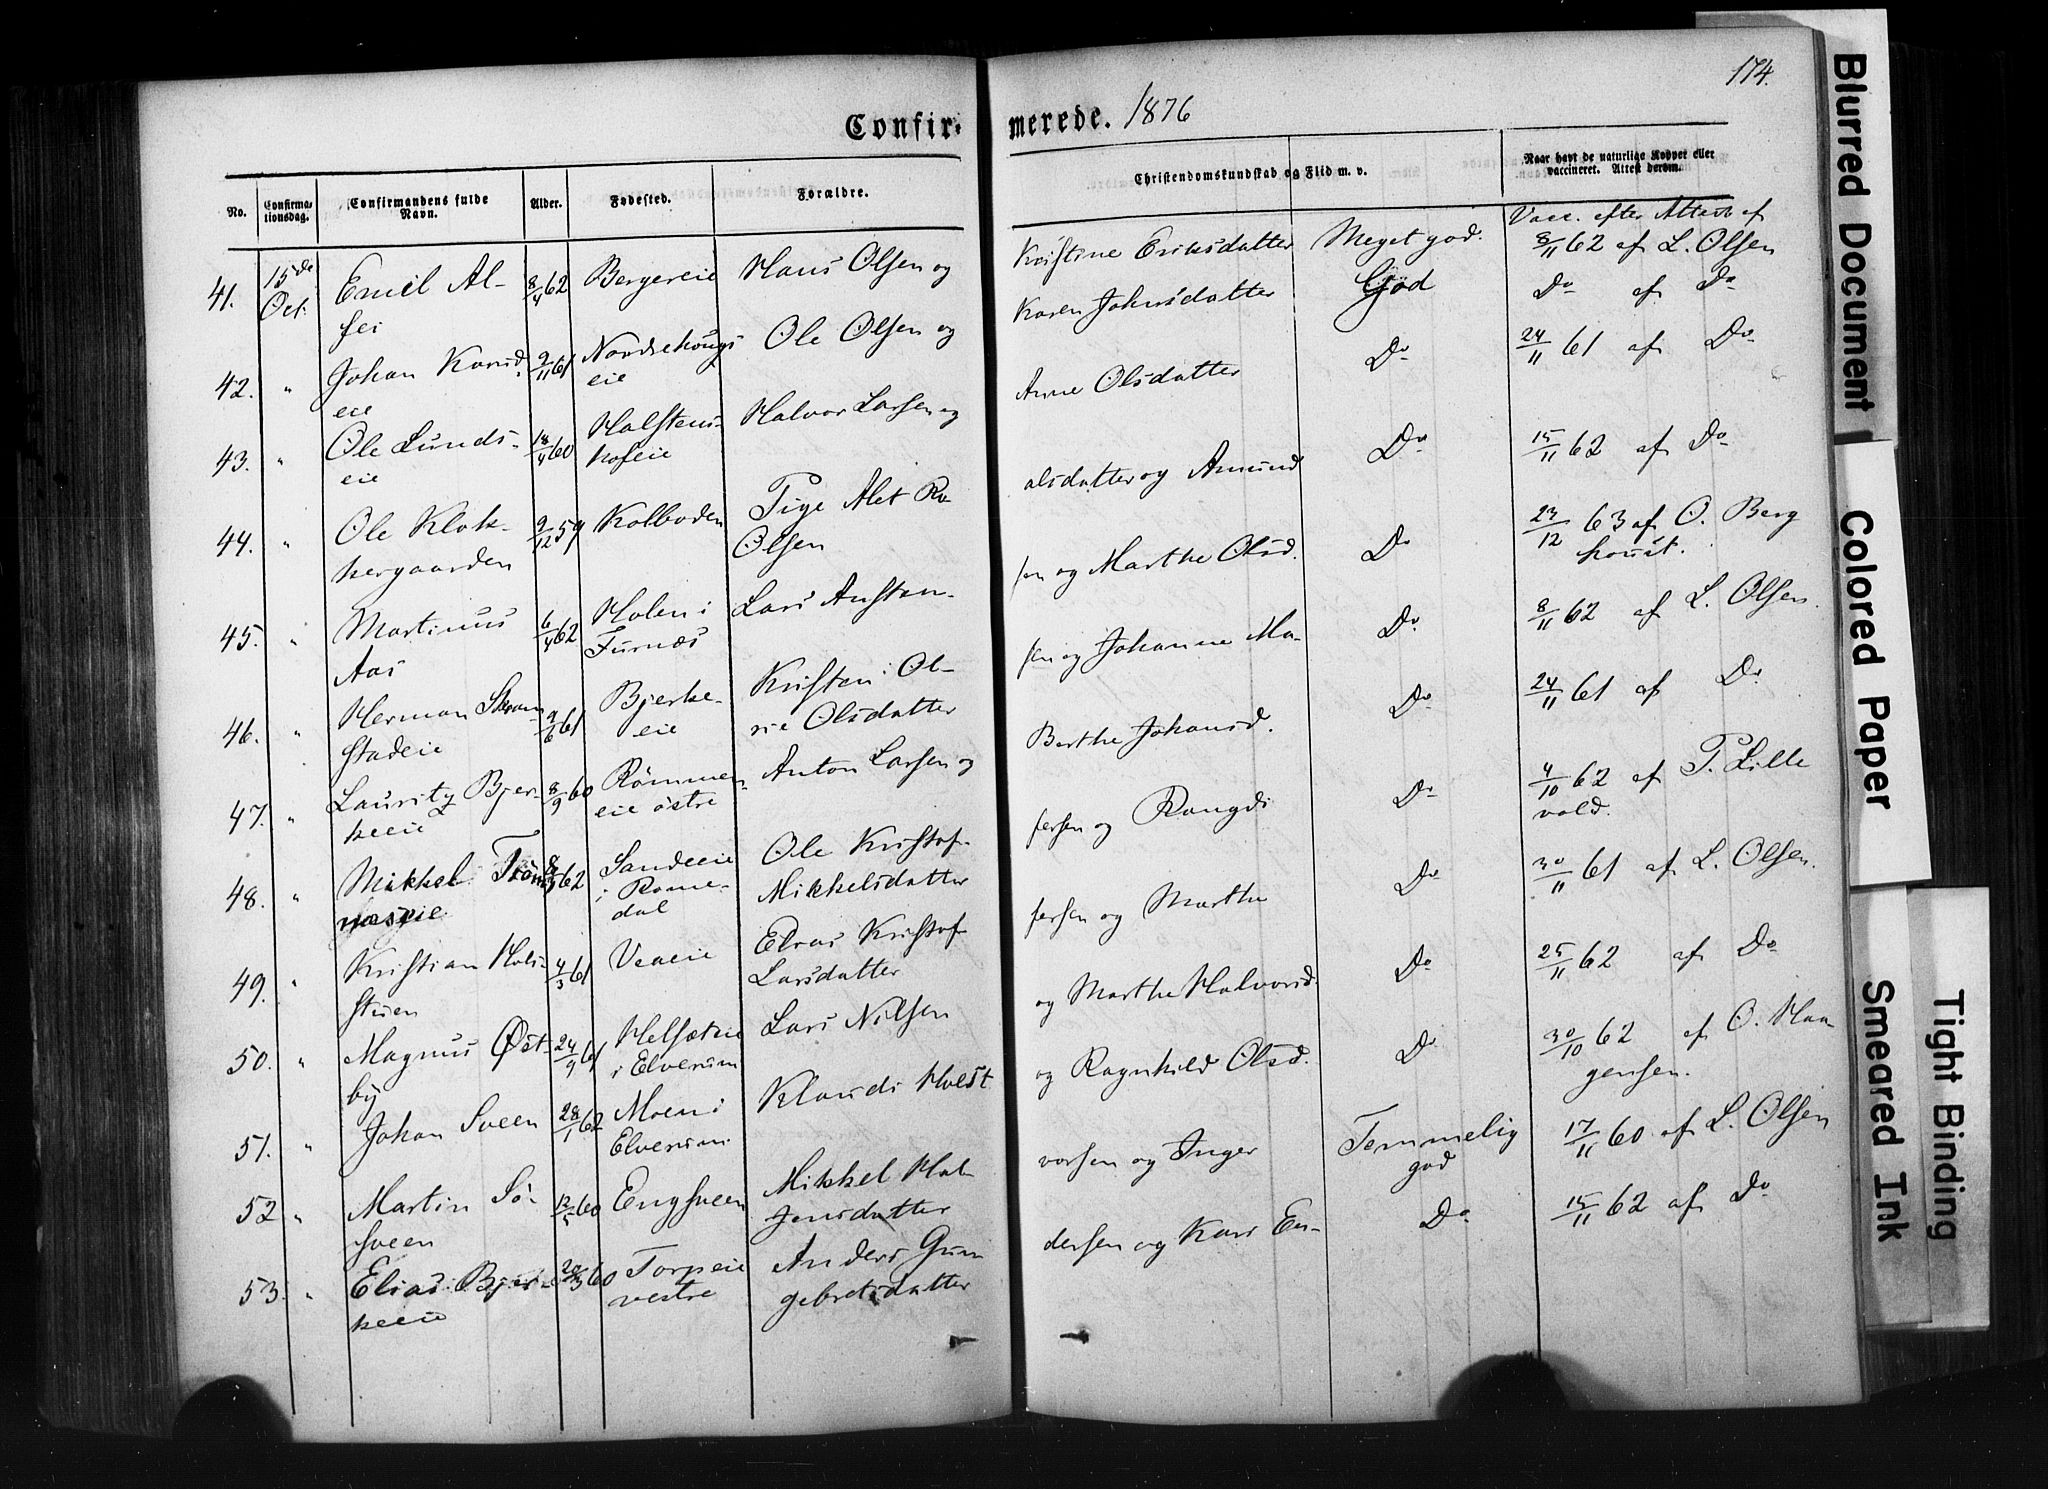 174.
Confir- merede. 1876
No. Confirma-tionsdag. Confirmandens fulde Navn. Alder. Fødested. Forældre. Christendomskundskab og Flid m. v. Naar havt de naturlige Kopper eller vaccineret. Attest derom.
Vacc. efter Attest af
41. 15de Oct. Emil Al- 8/4 62 Bergereie Hans Olsen og Kristine Eriksdatter Meget god. 8/11 62 af L. Olsen
sei
42. " Johan Korud- 9/11 61 Nordsehougs Ole Olsen og Karen Johnsdatter God Do af Do
eie eie
43. " Ole Lunds- 18/4 60 Halstens- Halvor Larsen og Anne Olsdatter Do 24/11 61 af Do
eie hofeie
44. " Ole Klok- 9/12 59 Kolboden Pige Alet Ro- alsdatter og Amund Do 15/11 62 af Do
kergaarden Olsen
45. " Martinus 6/4 62 Holen i Lars Austen- sen og Marthe Olsd. Do 23/12 63 af O. Berg
Aas Furnæs houst.
46. " Herman Skram 9/6 61 Bjerke- Kristen Ol- sen og Johanne Ma- Do 8/11 62 af L. Olsen.
stadeie eie rie Olsdatter
47. " Lauritz Bjer- 8/9 60 Rømmen- Anton Larsen og Berthe Johansd. Do 24/11 61 af Do
keeie eie østre
48. " Mikkel 62 Sandeeie Ole Kristof- fersen og Rangdi Do 4/10 62 af P. Lille
i Rome- Mikkelsdatter vold.
dal
49. " Kristian Hol- 4/3 61 Veaeie Elias Kristof- fersen og Marthe Do 30/11 61 af L. Olsen.
stuen Larsdatter
50. " Magnus Øst- 24/9 61 Helsæteie Lars Nilsen og Marthe Halvorsd. Do 25/11 62 af Do
by i Elverum
51. " Johan Sveen 28/1 62 Moen i Klaudi Holst og Ragnhild Olsd. Do 30/10 62 af O. Haa-
Elverum gensen.
52 " Martin Sø- 12/5 60 Engsveen Mikkel Hal- vorsen og Inger Temmelig god 17/11 60 af L. Olsen
sveen Jensdatter
53. " Elias Bjer- 60 Torpeie Anders Gun- dersen og Kari En- Do 15/11 62 af Do
keeie vestre gebretsdatter
Blurred Document
Colored Paper
Smeared Ink
Tight Binding